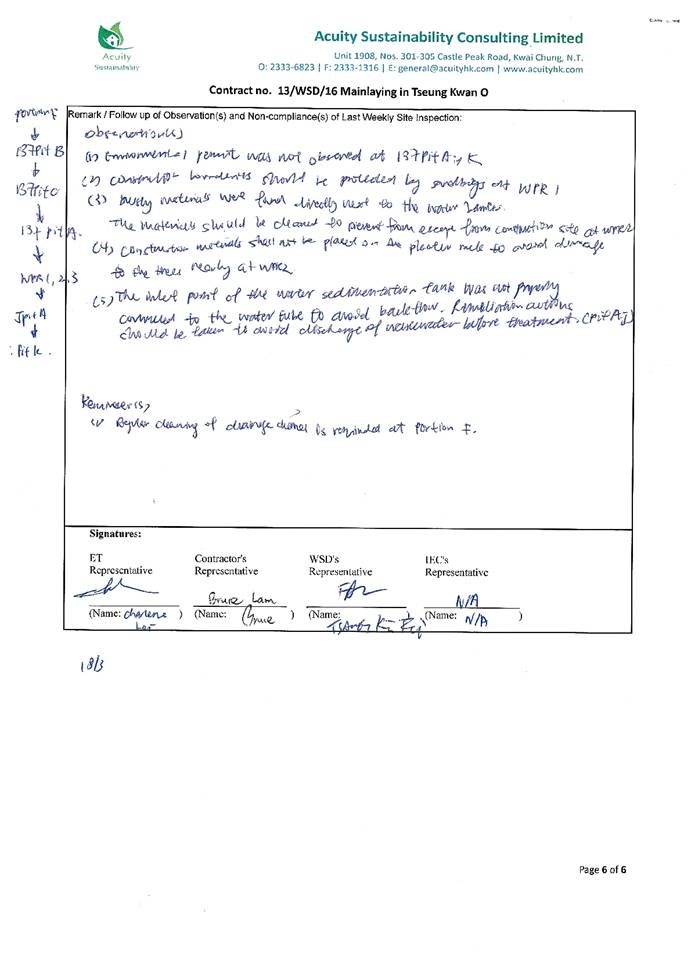 Acuity Sustainability Consulting Limited
Acuity
Sustainability
Unit 1908, Nos. 301-305 Castle Peak Road, Kwai Chung, N.T.
O: 2333-6823 | F: 2333-1316 | E: general@acuityhk.com | www.acuityhk.com
Contract no. 13/WSD/16 Mainlaying in Tseung Kwan O
Remark / Follow up of Observation(s) and Non-compliance(s) of Last Weekly Site Inspection:
137Pit B
137Pit C
137 Pit A.
WPR 1, 2, 3
JPit A
Pit K.
Observation(s)
(1) Environmental permit was not observed at 137Pit A, K
(2) Construction should be provided by sandbags at WPR 1
(3) Dusty materials were found directly next to the water
The materials should be cleaned to prevent from escape from construction site at WPR2
(4) Construction materials shall not be placed on the planter to avoid damage
to the trees nearby at WPR2
(5) The inlet point of the water sedimentation tank was not properly
connected to the water tube to avoid backflow. Remediation actions
should be taken to avoid discharge of wastewater before treatment. (Pit A, J)
Reminder(s)
(1) Regular cleaning of drainage channel is reminded at Portion F.
Signatures:
ET
Representative
Contractor's
Representative
WSD's
Representative
IEC's
Representative
Bruce Lam
N/A
(Name: Charlene )
(Name: Bruce )
(Name: Tsang )
(Name: N/A )
18/3
Page 6 of 6